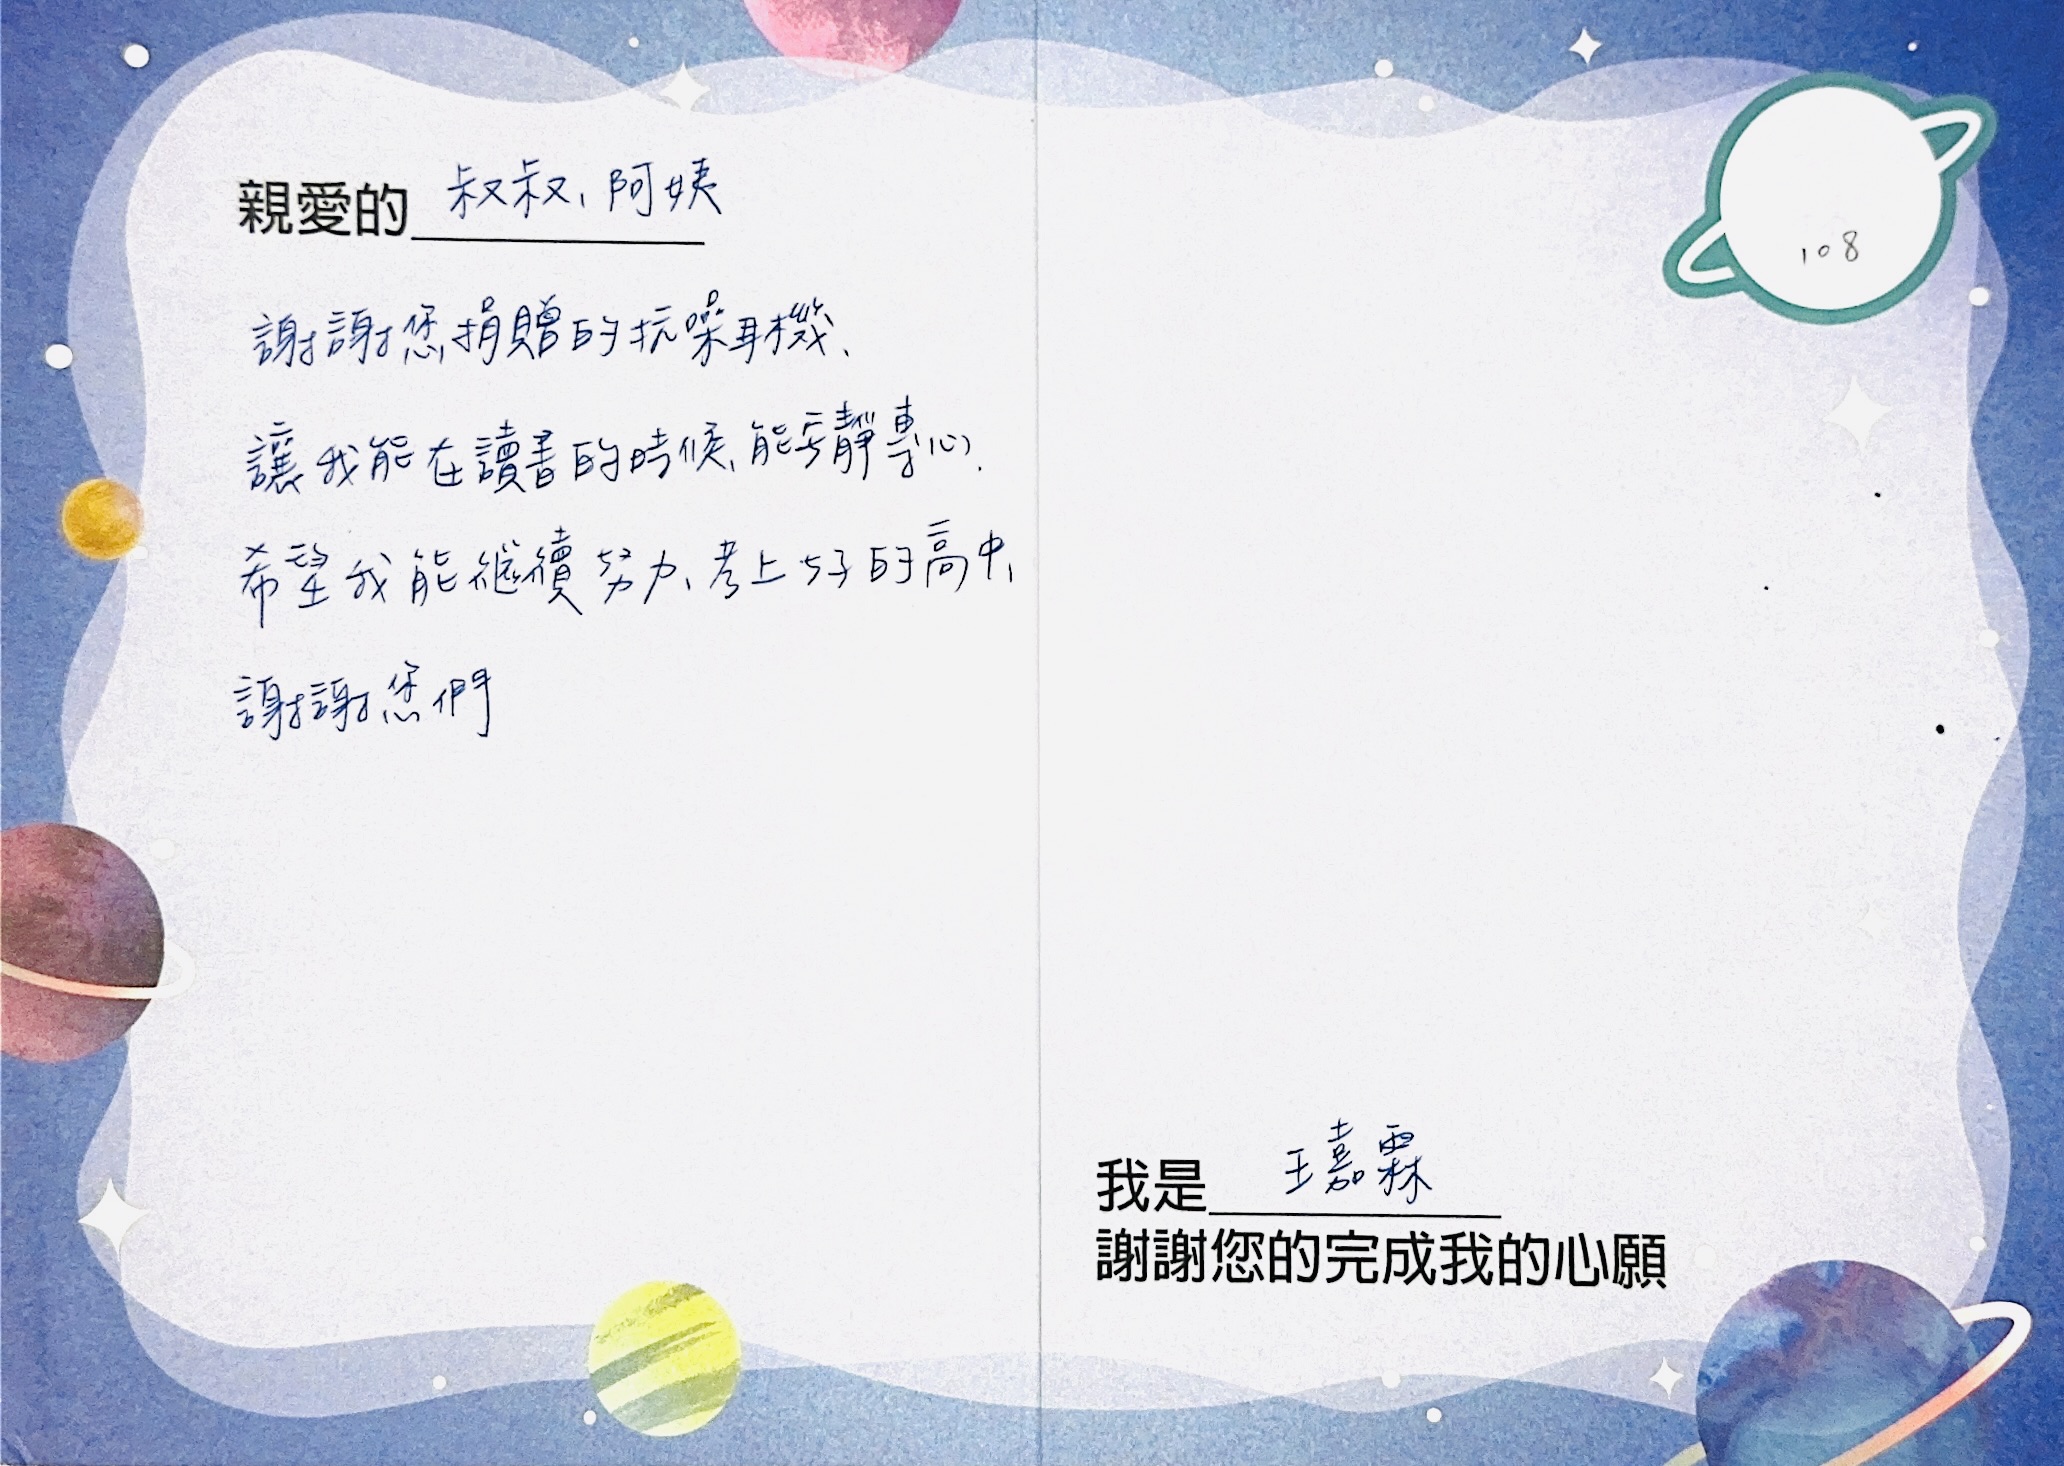 親愛的 叔叔、阿姨
108
謝謝您捐贈的抗噪耳機、
讓我能在讀書的時候、能安靜專心.
希望我能繼續努力、考上好的高中、
謝謝您們
我是 王嘉霖
謝謝您的完成我的心願